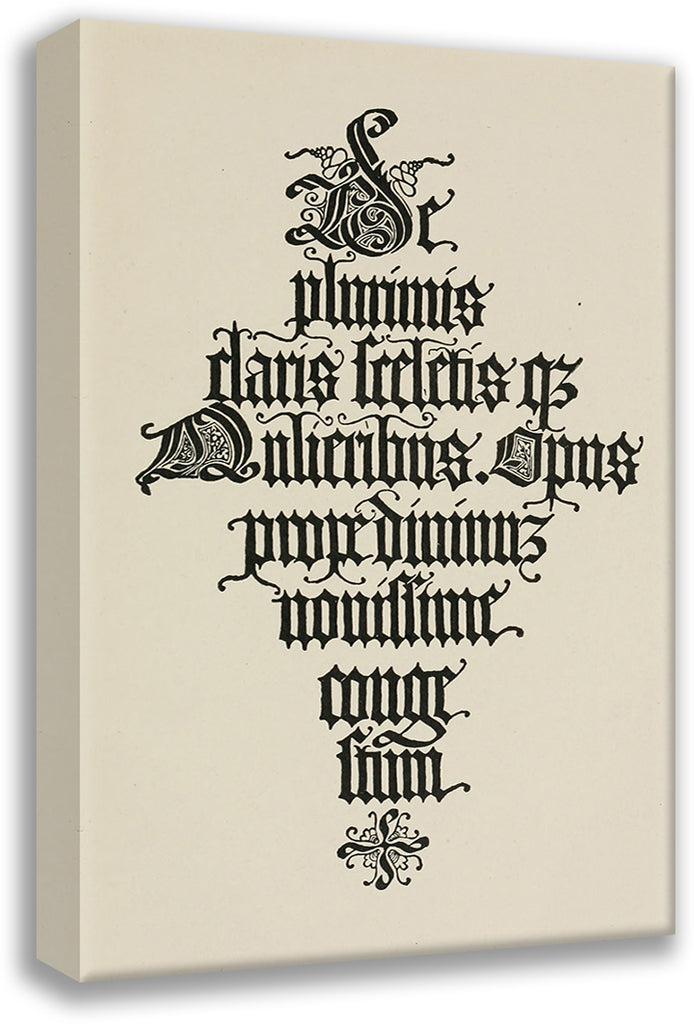 De
plurimis
claris ſceletis qꝫ
Mulieribus. Opus
prope diuinuz
nouiſſime
conge
ſtum